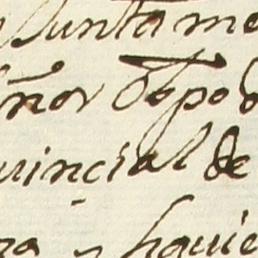 Juntame
eñor Obpo d
uincial de
za y hauie